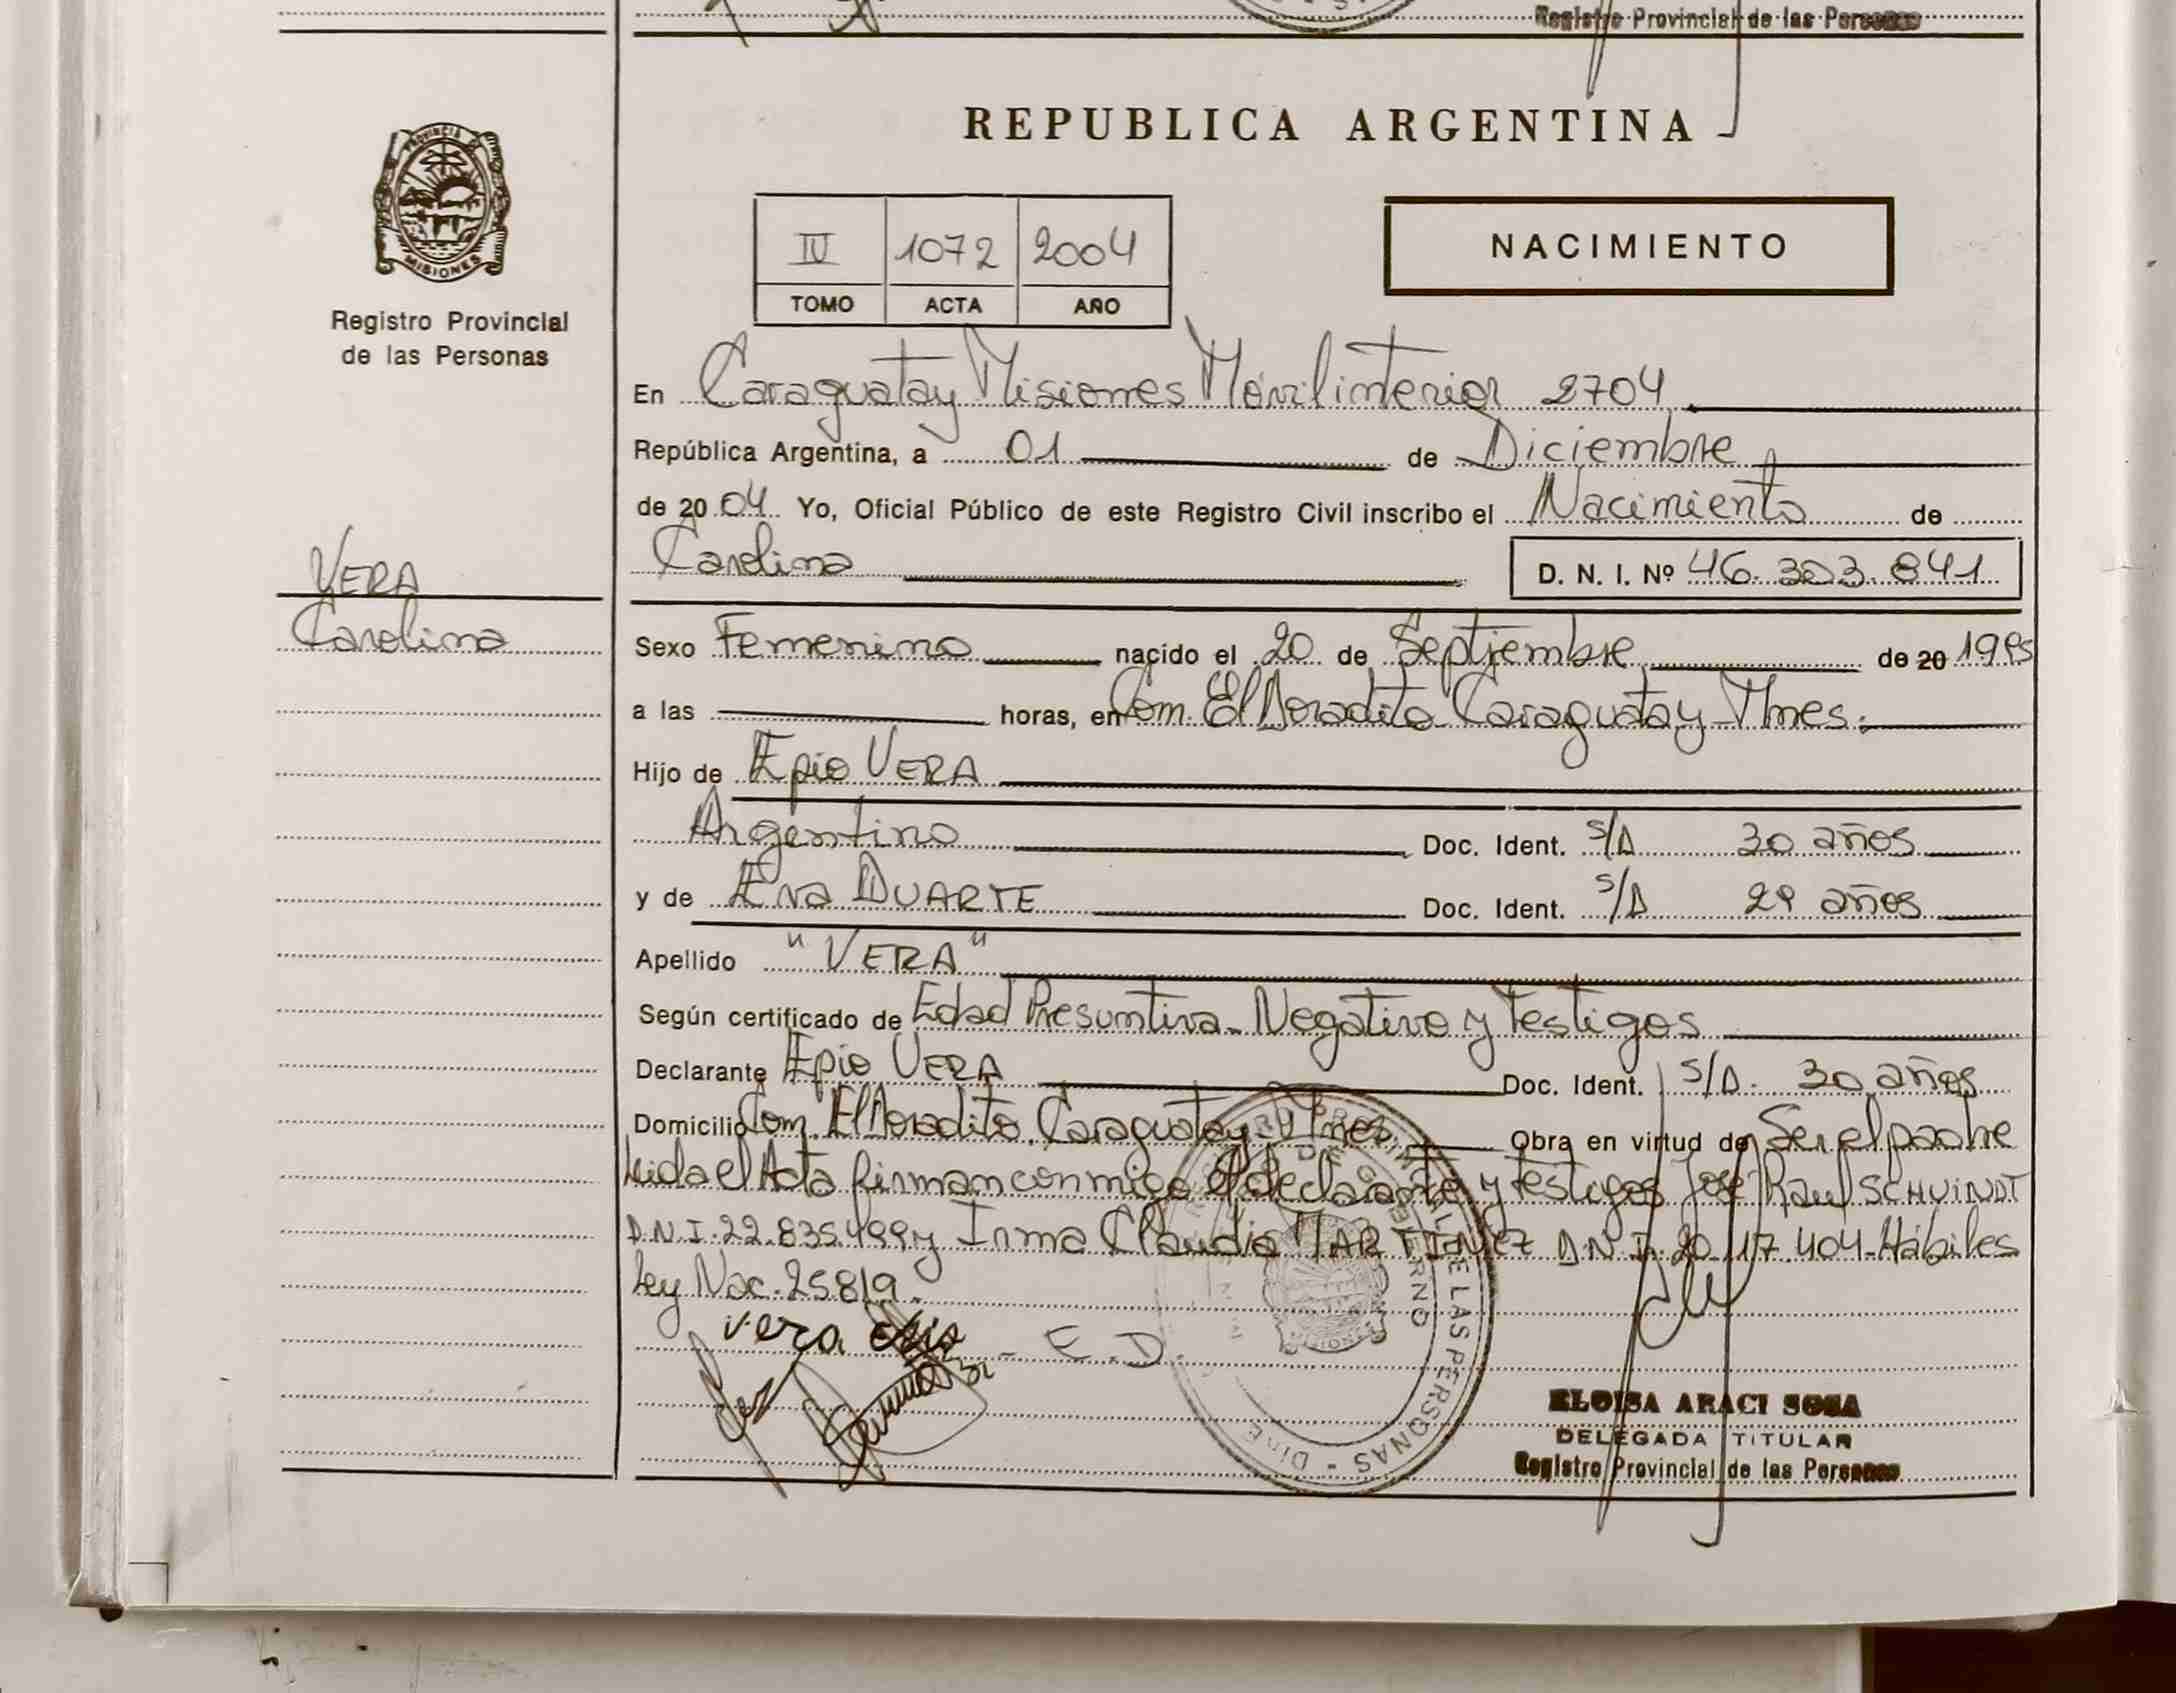 Registro Provincial de las Personas
REPUBLICA ARGENTINA
PROVINCIA
MISIONES
Registro Provincial
de las Personas
IV 1072 2004
TOMO ACTA AÑO
NACIMIENTO
En Caraguatay Misiones Móvil interior 2704
República Argentina, a 01 de Diciembre
de 2004 Yo, Oficial Público de este Registro Civil inscribo el Nacimiento de
VERA
Carolina
Carolina D. N. I. Nº 46.303.841
Sexo Femenino nacido el 20 de Septiembre de 20 1995
a las horas, en Com. El Doradito Caraguatay Mnes.
Hijo de Epio VERA
Argentino Doc. Ident. S/D 30 años
y de Eva DUARTE Doc. Ident. S/D 29 años
Apellido "VERA"
Según certificado de Edad Presuntiva - Negativo y Testigos
Declarante Epio VERA Doc. Ident. S/D. 30 años
Domicilio Com. El Doradito. Caraguatay Mnes. Obra en virtud de Ser el padre
Leida el Acta firman conmigo el declarante y testigos José Raul SCHUINDT
D.N.I. 22.835.499 y Irma Claudia MARTINEZ D.N.I. 20.117.404-Hábiles
Ley Nac. 25819.
Vera Epio - E.D.
REGISTRO PROVINCIAL DE LAS PERSONAS
ELOISA ARACI SOSA
DELEGADA TITULAR
Registro Provincial de las Personas